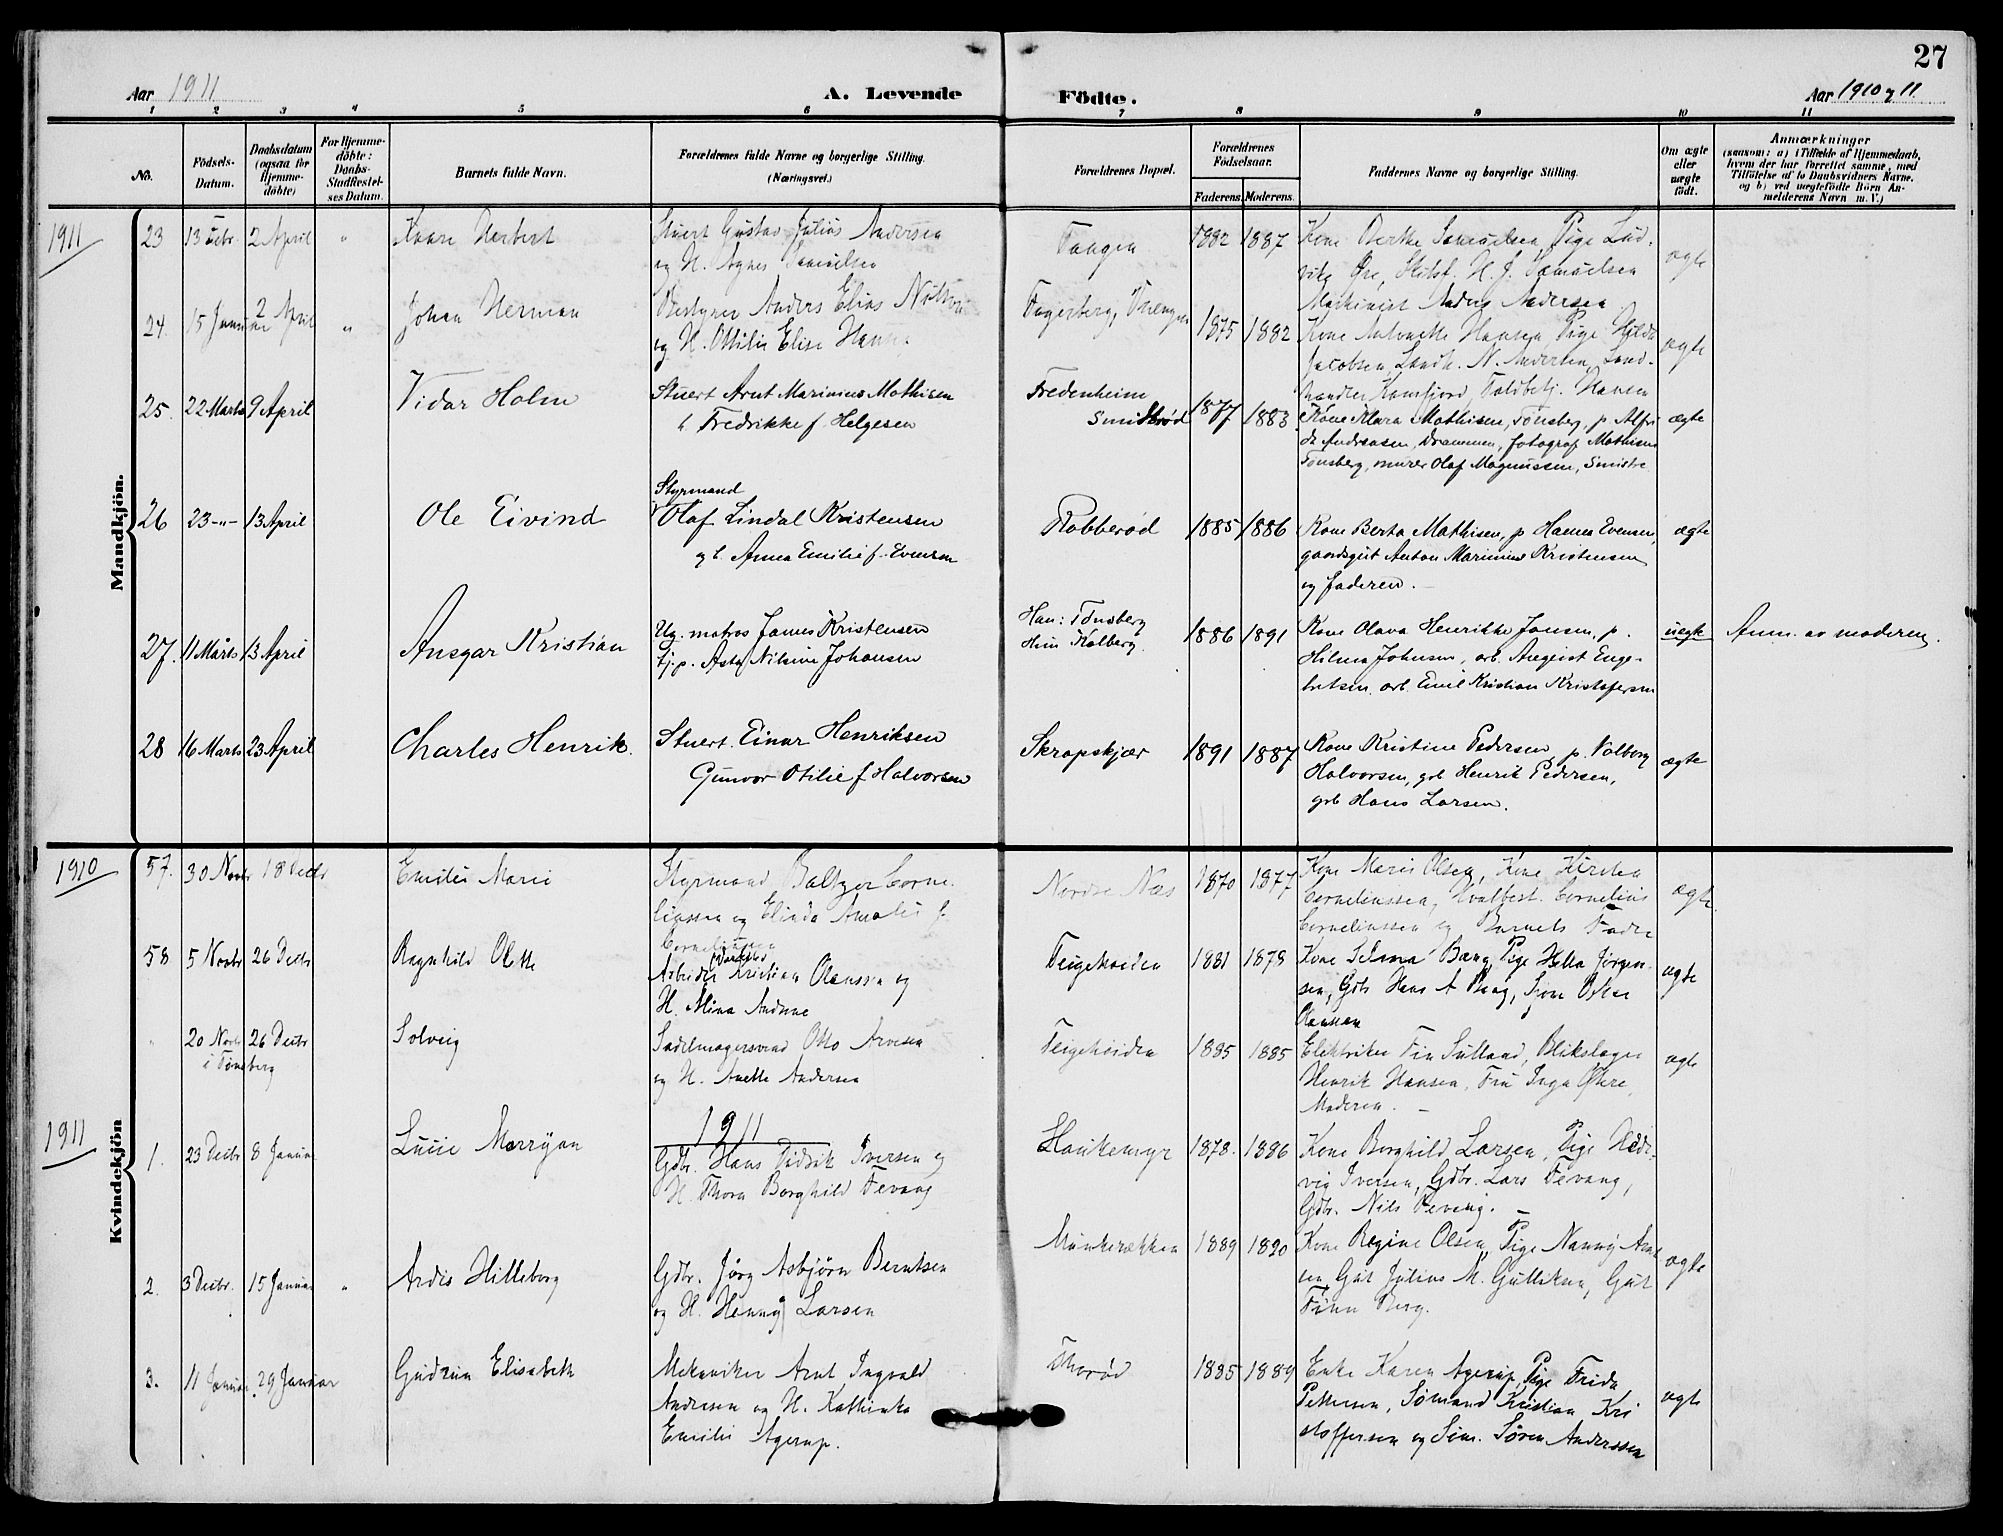 27
Aar 1911
A. Levende Födte.
Aar 1910 11
1 2 3 4 5 6 7 8 9 10 11
No.
Födsels-Datum.
Daabsdatum (ogsaa for Hjemme-döbte)
For Hjemme-döbte: Daabs-Stadfæstel-ses Datum.
Barnets fulde Navn.
Forældrenes fulde Navne og borgerlige Stilling. (Næringsvei.)
Forældrenes Bopæl.
Forældrenes Födselsaar.
Faderens. Moderens.
Faddernes Navne og borgerlige Stilling.
Om ægte eller uægte födt.
Anmærkninger
(saasom: a) i Tilfælde af Hjemmedaab, hvem der har forrettet samme, med Tilföielse af to Daabsvidners Navne, og b) ved uægtefödte Börn An-melderens Navn m. V.)
Mandkjön.
1911
23 13 Febr. 2 April " Kaare Herbert
Stuert Gustav Julius Andersen
og H. Agnes Samuelsen
Tangen 1882 1887
Kone Berthe Samuelsen, Pige Lud-
vike Øre, H. J. Samuelsen
Maskinist Anders Andersen
ægte
24. 15 Januar 2 April " Johan Herman
Bestyrer Anders Elias
og H. Ottilie Elise
Fagerberg, 1875 1882
Kone Antonette Hansen, Pige
Jacobsen, Landh. N. Andersen, Land-
handler Kamfjord, Toldbetj. Hansen
ægte
25. 22 Marts 9 April Vidar Holm
Stuert Arnt Marinius Mathisen
h. Fredrikke f. Helgesen
Fredenheim
Smidsrød 1877 1883
Kone Klara Mathisen, Tønsberg, p Alfri
da Andreasen, Drammen, fotograf Mathisen
Tønsberg, murer Olaf Magnussen, Smistr
ægte
26 23 -"- 13 April Ole Eivind
Styrmand
Olaf Lindal Kristensen
og h. Anna Emilie f. Evensen
Robberød 1885 1886
Kone Berta Mathisen, p Hanna Evensen,
gaardsgut Anton Marinius Kristensen
og faderen. -
ægte
27. 11 Marts 13 April Ansgar Kristian
Ug. matros James Kristensen
tj.p. Asta Nilsine Johansen
Han: Tønsberg
Hun Kolberg. 1886 1891
Kone Olava Henrikke Jansen, p.
Hilma Johnsen, arb. August Enge-
bretsen, arb. Emil Kristian Kristofersen
uegte Anm. av moderen.
28 16 Marts 23 April Charles Henrik.
Stuert. Einar Henriksen
Gunvor Otilie f Halvorsen
Skrapskjær 1891 1887
Kone Kristine Pedersen p. Valborg
Halvorsen, grb Henrik Pedersen,
grb Hans Larsen.
ægte
Kvindekjön
1910
57. 30 Novbr 18 Decbr Emilie Marie
Styrmand Baltzer Corne-
liussen og Elinda Amalie f.
Corneliussen
Nordre Næs 1870 1877
Kone Marie Olsen, Kone Kirsten
Corneliussen, Hvalbest. Cornelius
Corneliussen og Barnets Fader
ægte.
58 5 Novbr 26 Decbr Ragnhild Olette
Arbeider Kristian Olaussen og
H. Mina Andrine
Teigeheiden 1881 1878
Kone Selma Bang, Pige Hella Jørgen-
sen, Gdb. Hans A Bang, Oskar
Olaussen
ægte
" 20 Novbr 26 Decbr Solveig
i Tønsberg
Sadelmagersvend Otto Arvesen
og H. Anette Andersen
Teigeheiden 1885 1885
Elektriker Fin Sulland, Blikslager
Henrik Hansen, Fru Inga Østre,
Moderen. -
ægte
1911
1911
1. 23 Decbr 8 Januar Lucie Marryan
Gdbr. Hans Didrik Iversen og
H. Thora Borghild Fevang
Haukemyr 1878. 1886
Kone Borghild Larsen, Pige Hed-
vig Iversen, Gdbr. Lars Fevang,
Gdbr. Nils Fevang. -
2. 3 Decbr. 15 Januar " Ardis Hilleborg
Gdbr. Jörg Asbjørn Berntsen
og H. Henny Larsen
Munkerækken 1889 1890
Kone Regine Olsen, Pige Nanny Arnt
sen, Gut Julius M. Gulliksen, Gut
Finn Berg.
ægte
3. 11 Januar. 29 Januar Gudrun Elisabeth
Mekaniker Arnt Ingvald
Andersen og H. Kathinka
Emilie Agerup.
Thorød 1885 1889
Enke Karen Agerup, Pige Frida
Pettersen, Sømand Kristian Kri
stoffersen og Søm. Søren Anderssen
ægte